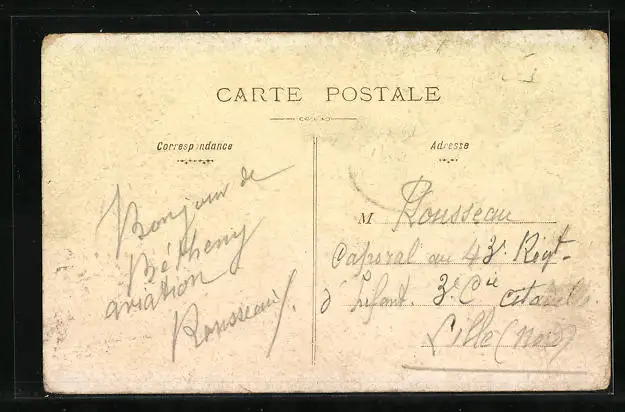 CARTE POSTALE
Correspondance
Adresse
Bonjour de
Bétheny
aviation
Rousseau
M Rousseau
Caporal au 43e Regt.
d'Infant. 3e Cie citadelle
Lille (Nord)